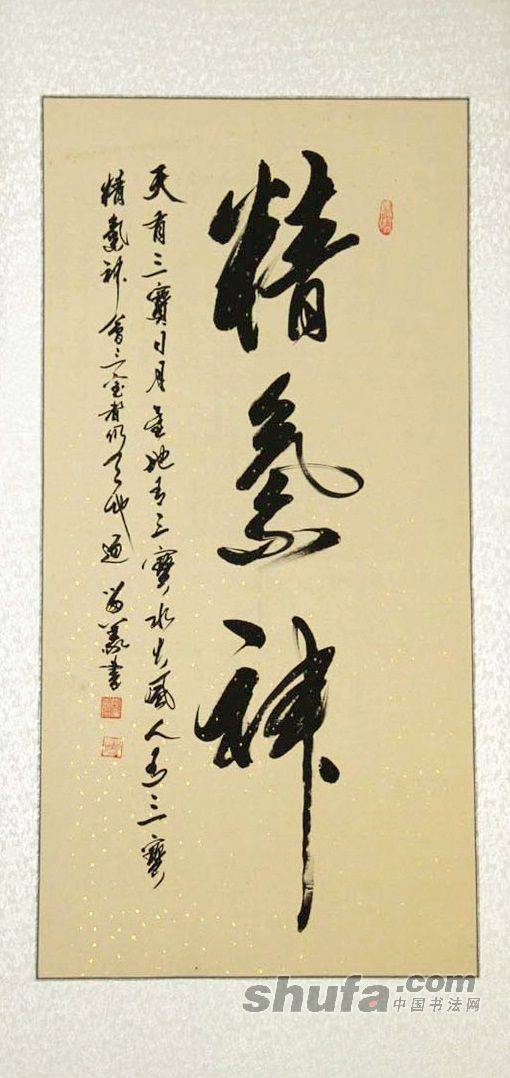 精氣神
天有三寶日月星地有三寶水火風人有三寶
精氣神會三宝者天地通書
shufa.com
中国书法网